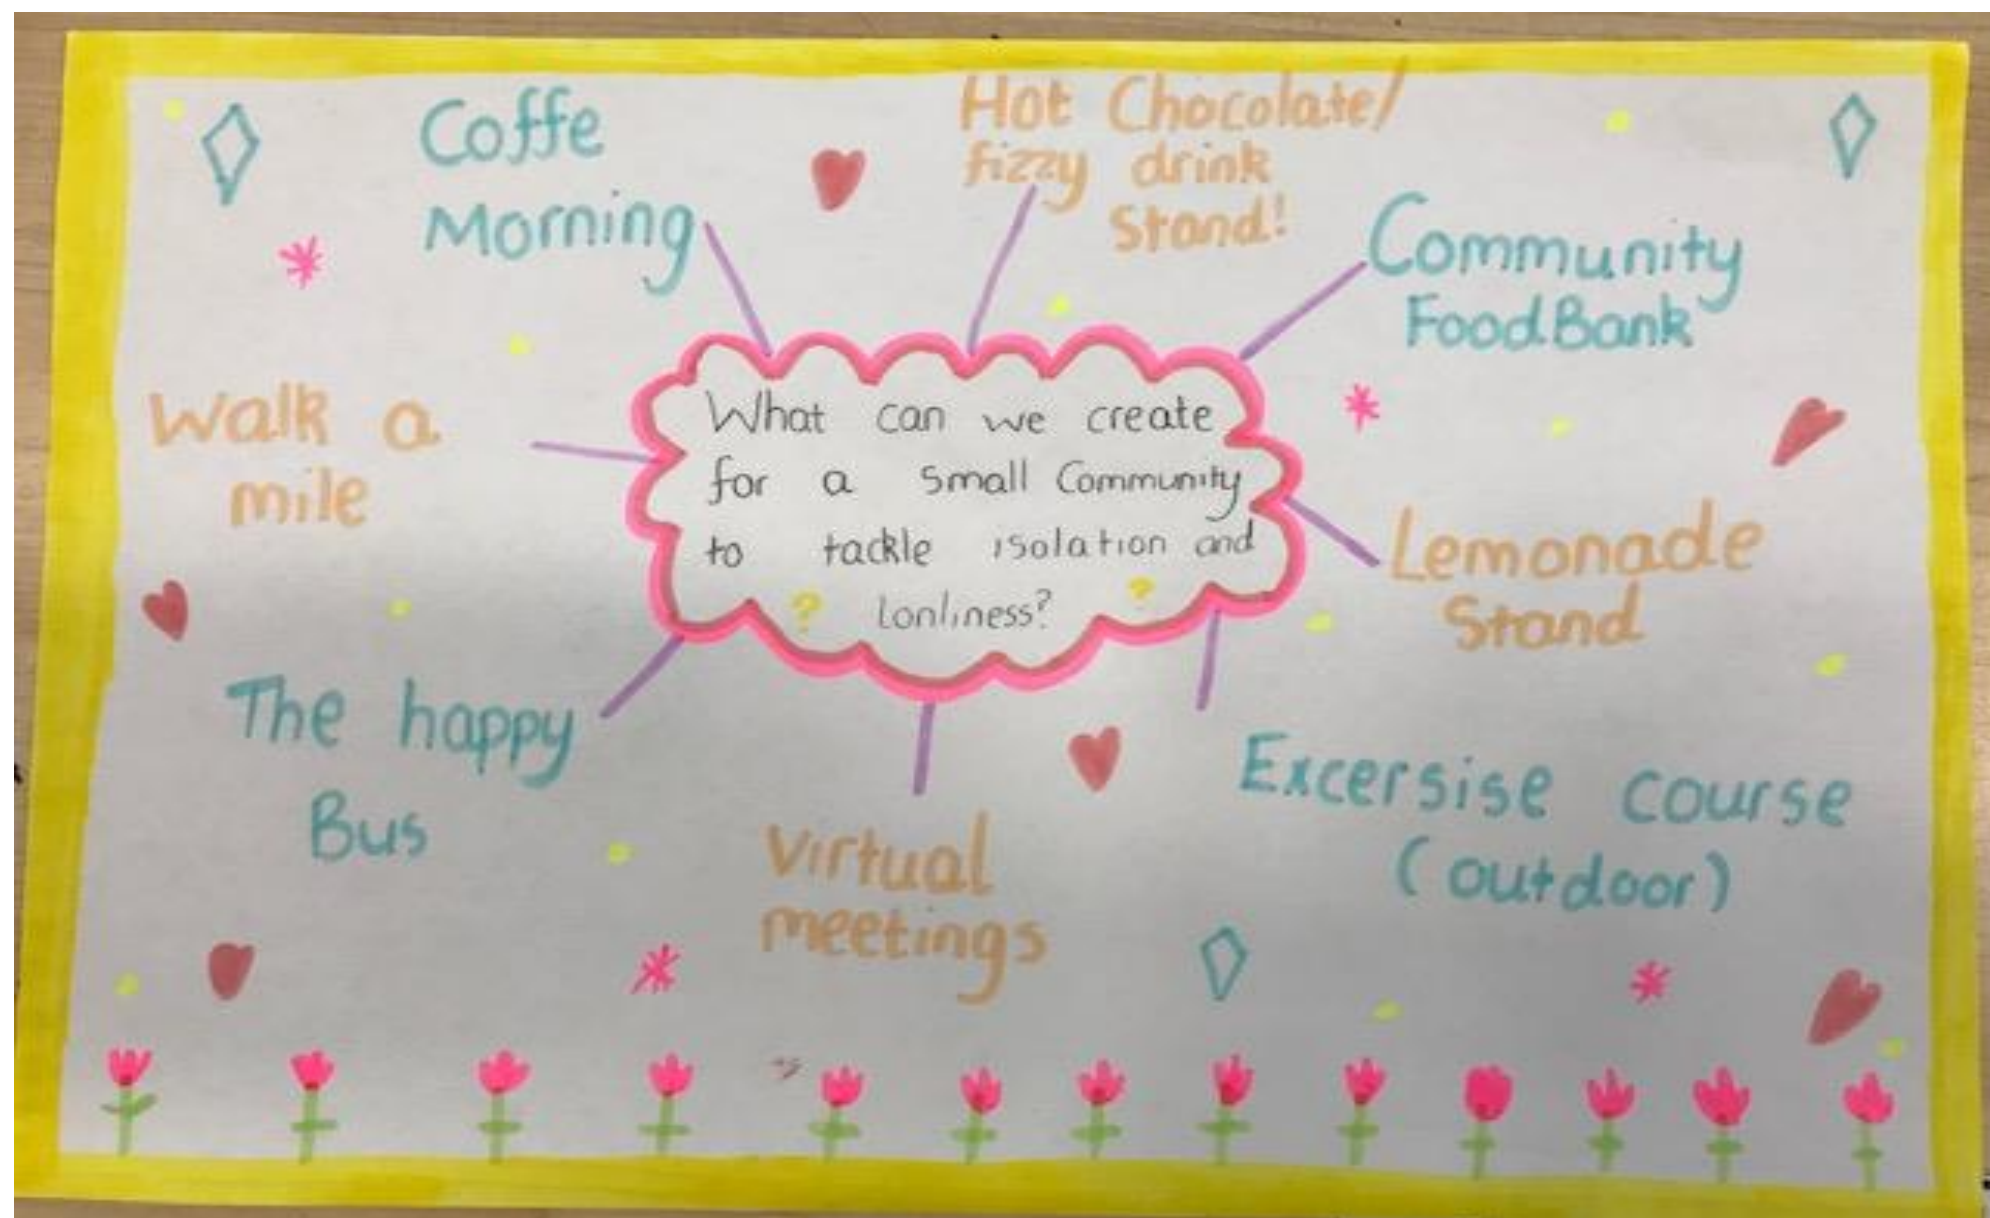 Coffe
Morning
Hot Chocolate/
fizzy drink
Stand!
Community
Food Bank
Walk a
mile
What can we create
for a small Community
to tackle isolation and
Lonliness?
? ?
Lemonade
Stand
The happy
Bus
Virtual
meetings
Excersise course
(outdoor)